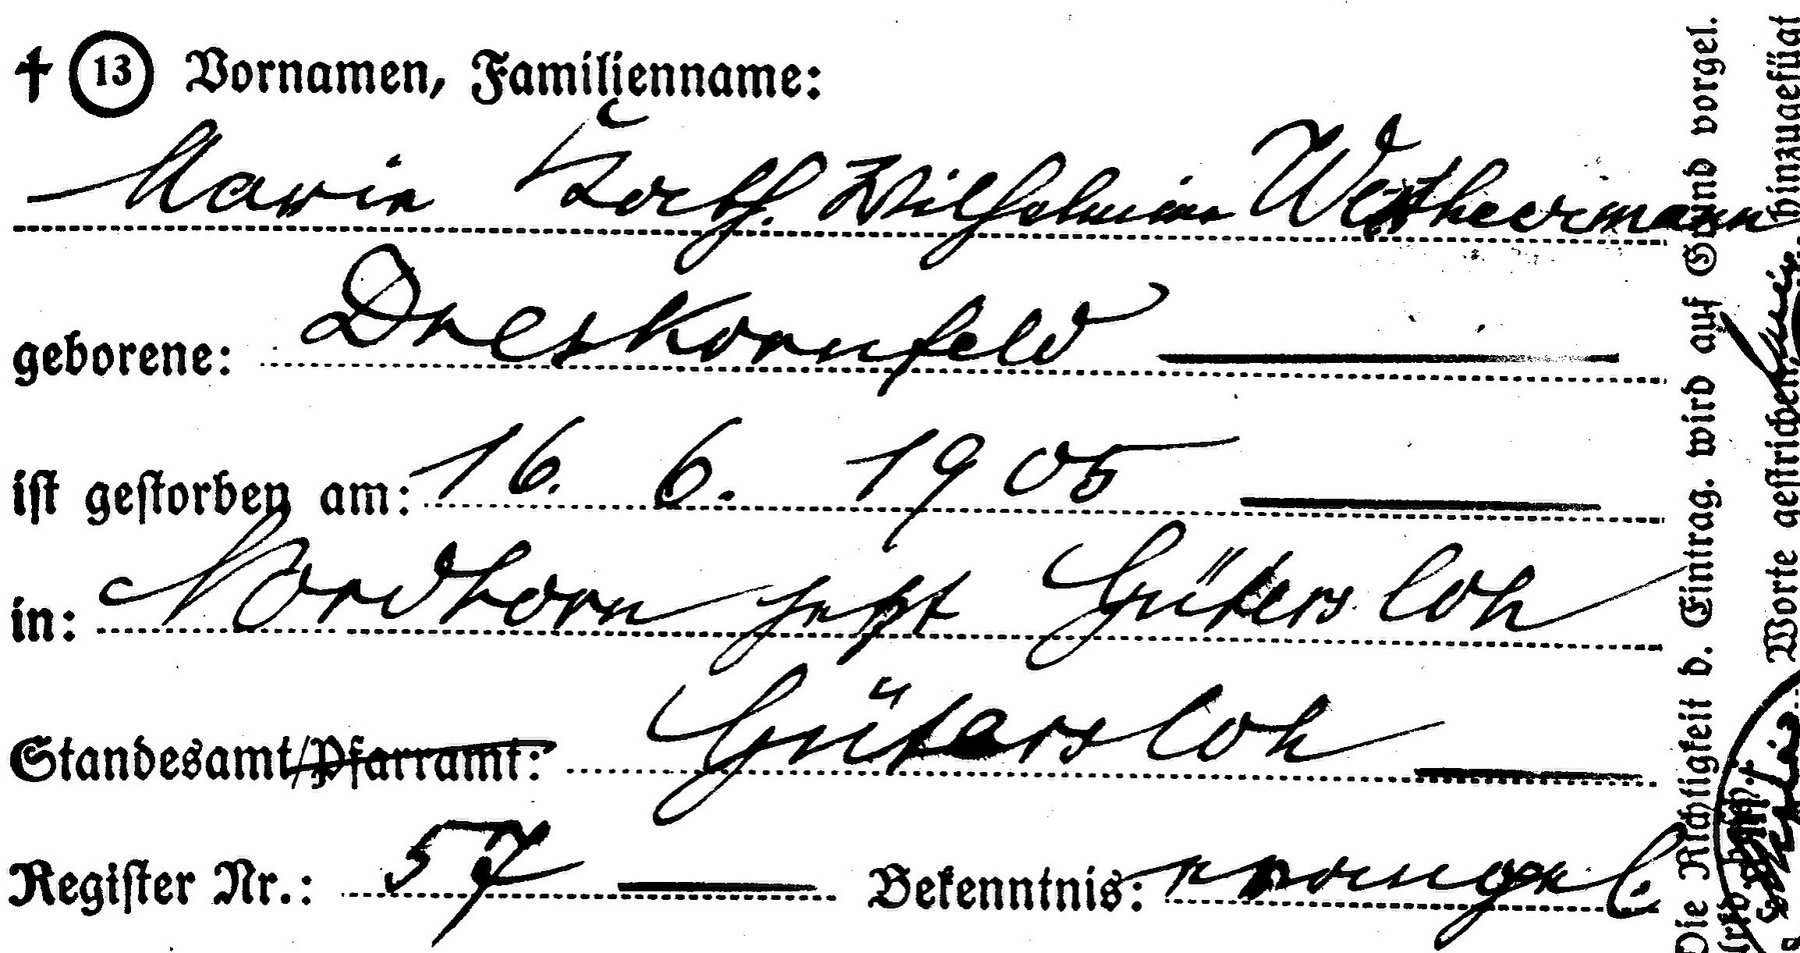 † 13 Vornamen, Familienname:
Marie Wilhelmine Westheermann
geborene: Dreskornfeld
ist gestorben am: 16. 6. 1905
in: Nordhorn jetzt Gütersloh
Standesamt/Pfarramt: Gütersloh
Register Nr.: 57 Bekenntnis: evangel.
Die Richtigkeit d. Eintrag. wird auf Grund vorgel.
Worte gestrichen, hinzugefügt